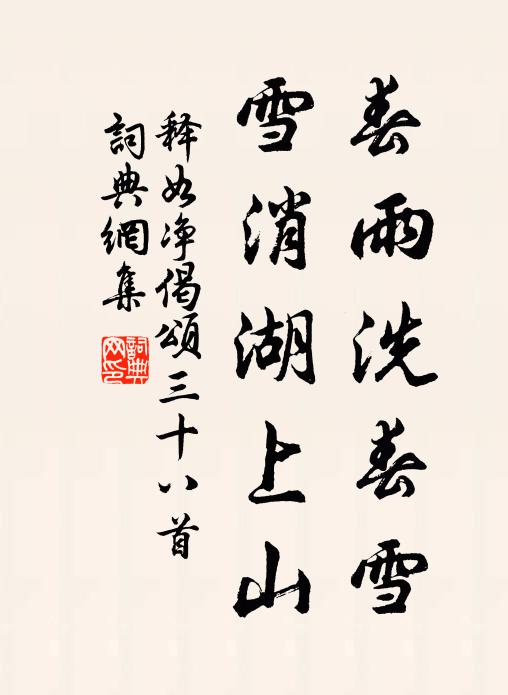 春雨洗春雪
雪消湖上山
释如净偈颂三十八首
詞典網集
詞典网印